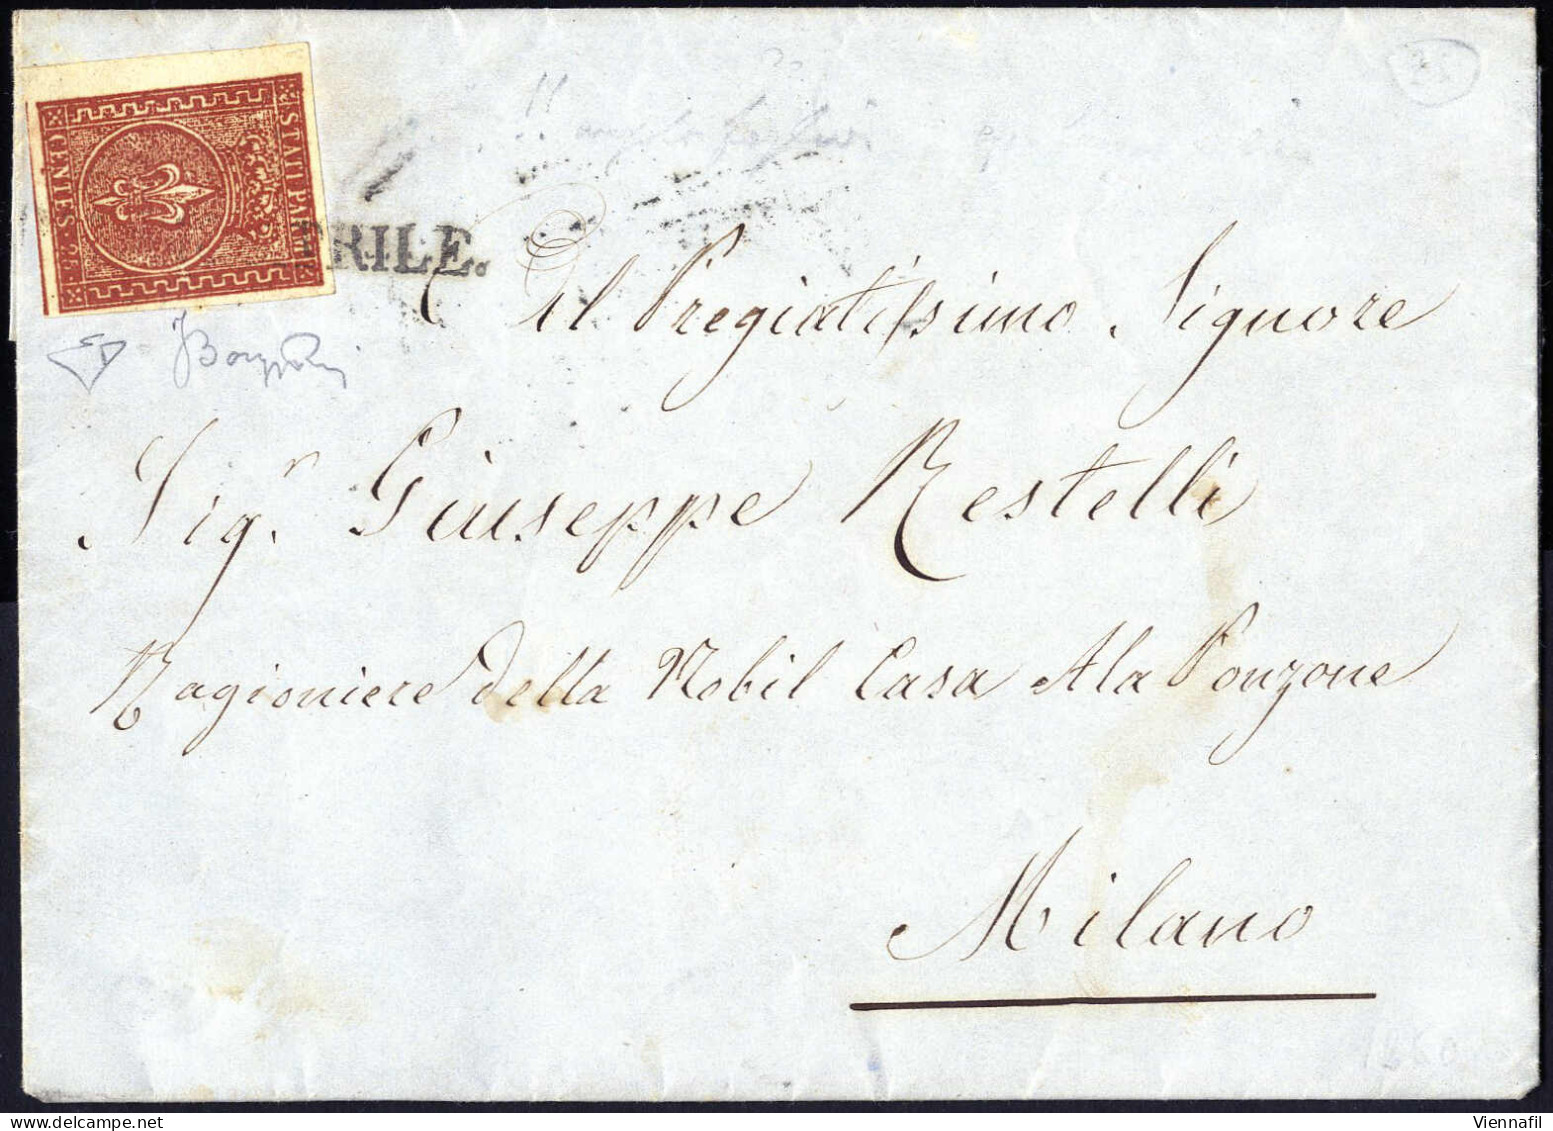 STATI PARM
CENTES. 25
PRILE.
Al Pregiatissimo Signore
Sig.r Giuseppe Restelli
Ragioniere della Nobil Casa Ala Ponzone
Milano
Viennafil